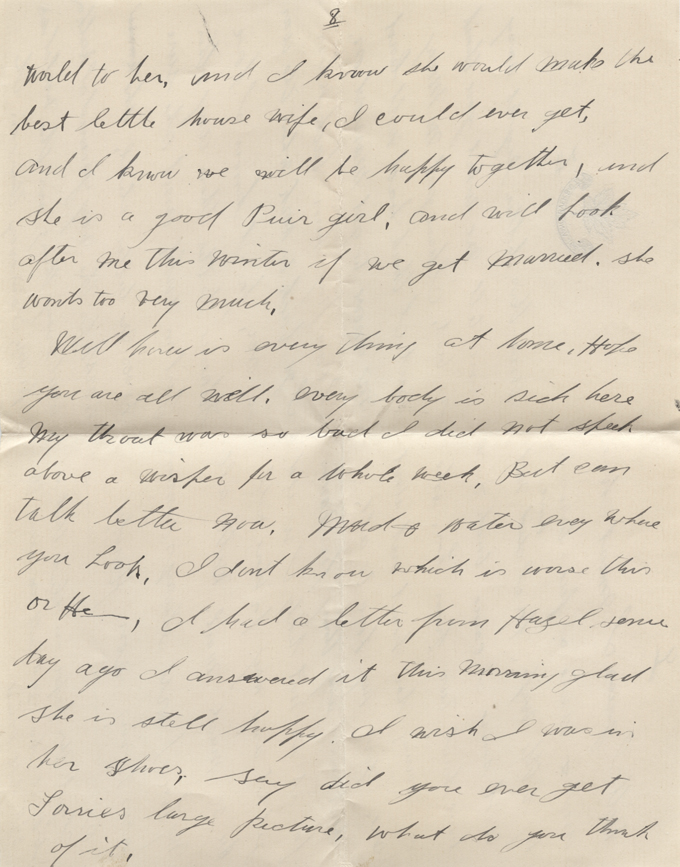 8
world to her, and I know she would make the
best little house wife, I could ever get,
and I know we will be happy together, and
she is a good Puir girl, and will Look
after me this winter if we get Married. she
wants too very much,
Well how is every thing at home, Hope
you are all well. every body is sick here
My throat was so bad I did not speek
above a wisper for a whole week, But can
talk better now. Mud & water evey where
you Look, I dont know which is worse this
or He, I had a letter from Hazel some
day ago I answered it this Morning glad
she is still happy. I wish I was in
her shoes, say did you ever get
large picture, what do you think
of it,